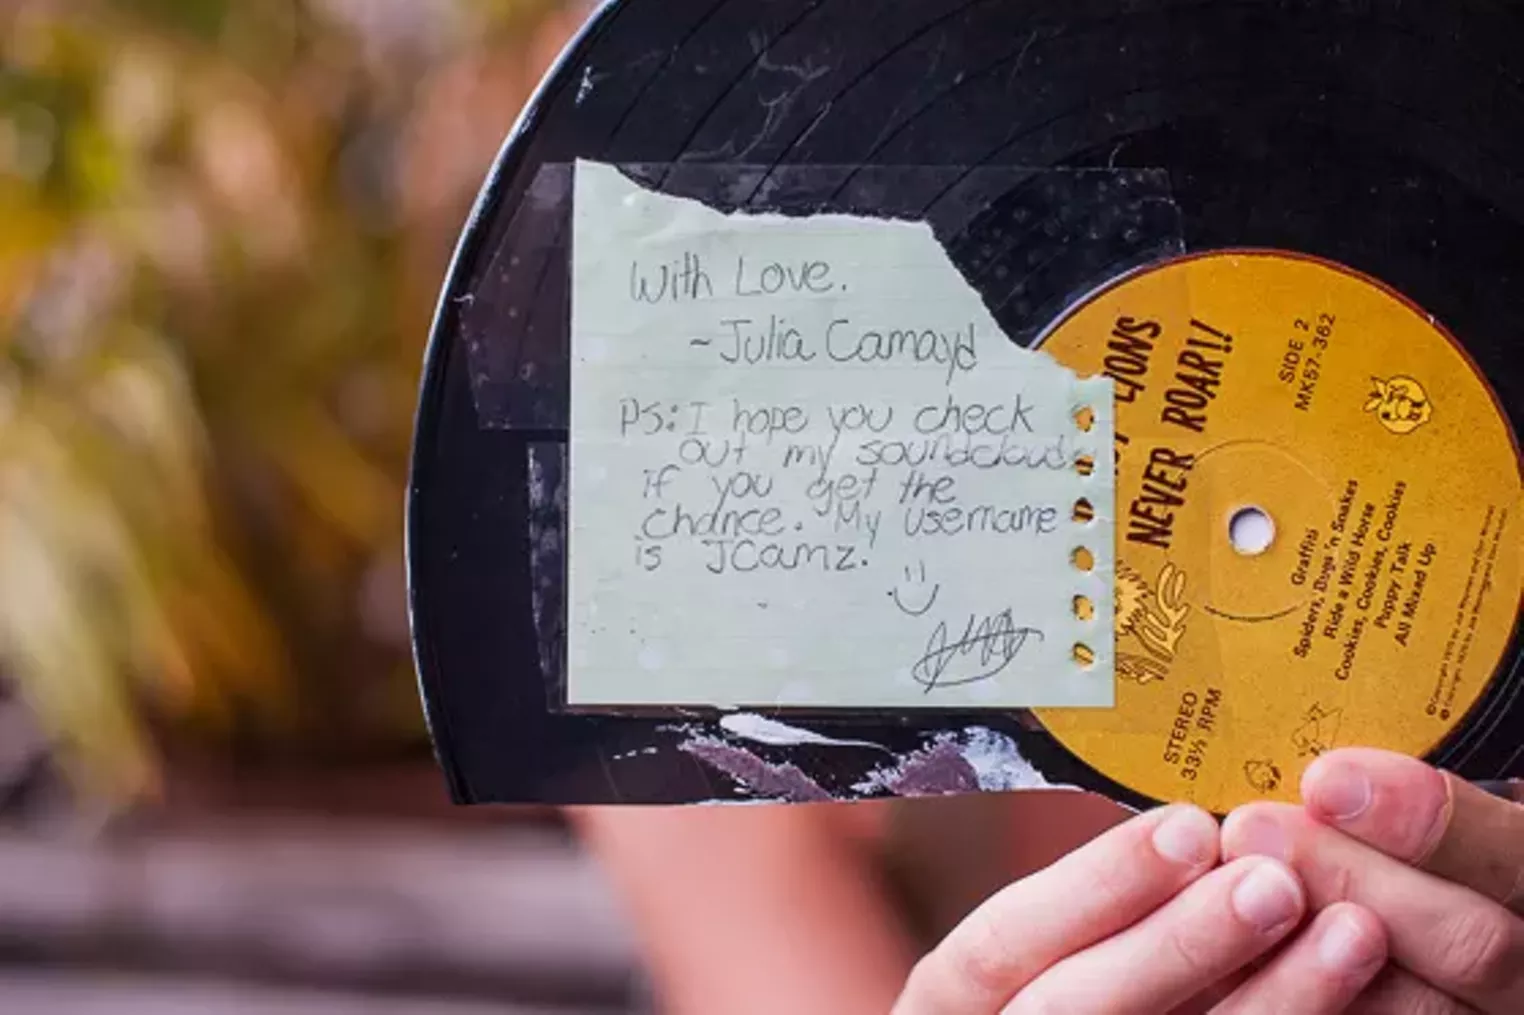 With Love.
~Julia Camayd
PS: I hope you check
out my soundcloud
if you get the
chance. My username
is JCamz!
LIONS
NEVER ROAR!!
SIDE 2
MK57-362
Graffiti
Spiders, Dogs 'n Snakes
Ride a Wild Horse
Cookies, Cookies, Cookies
Puppy Talk
All Mixed Up
STEREO
33⅓ RPM